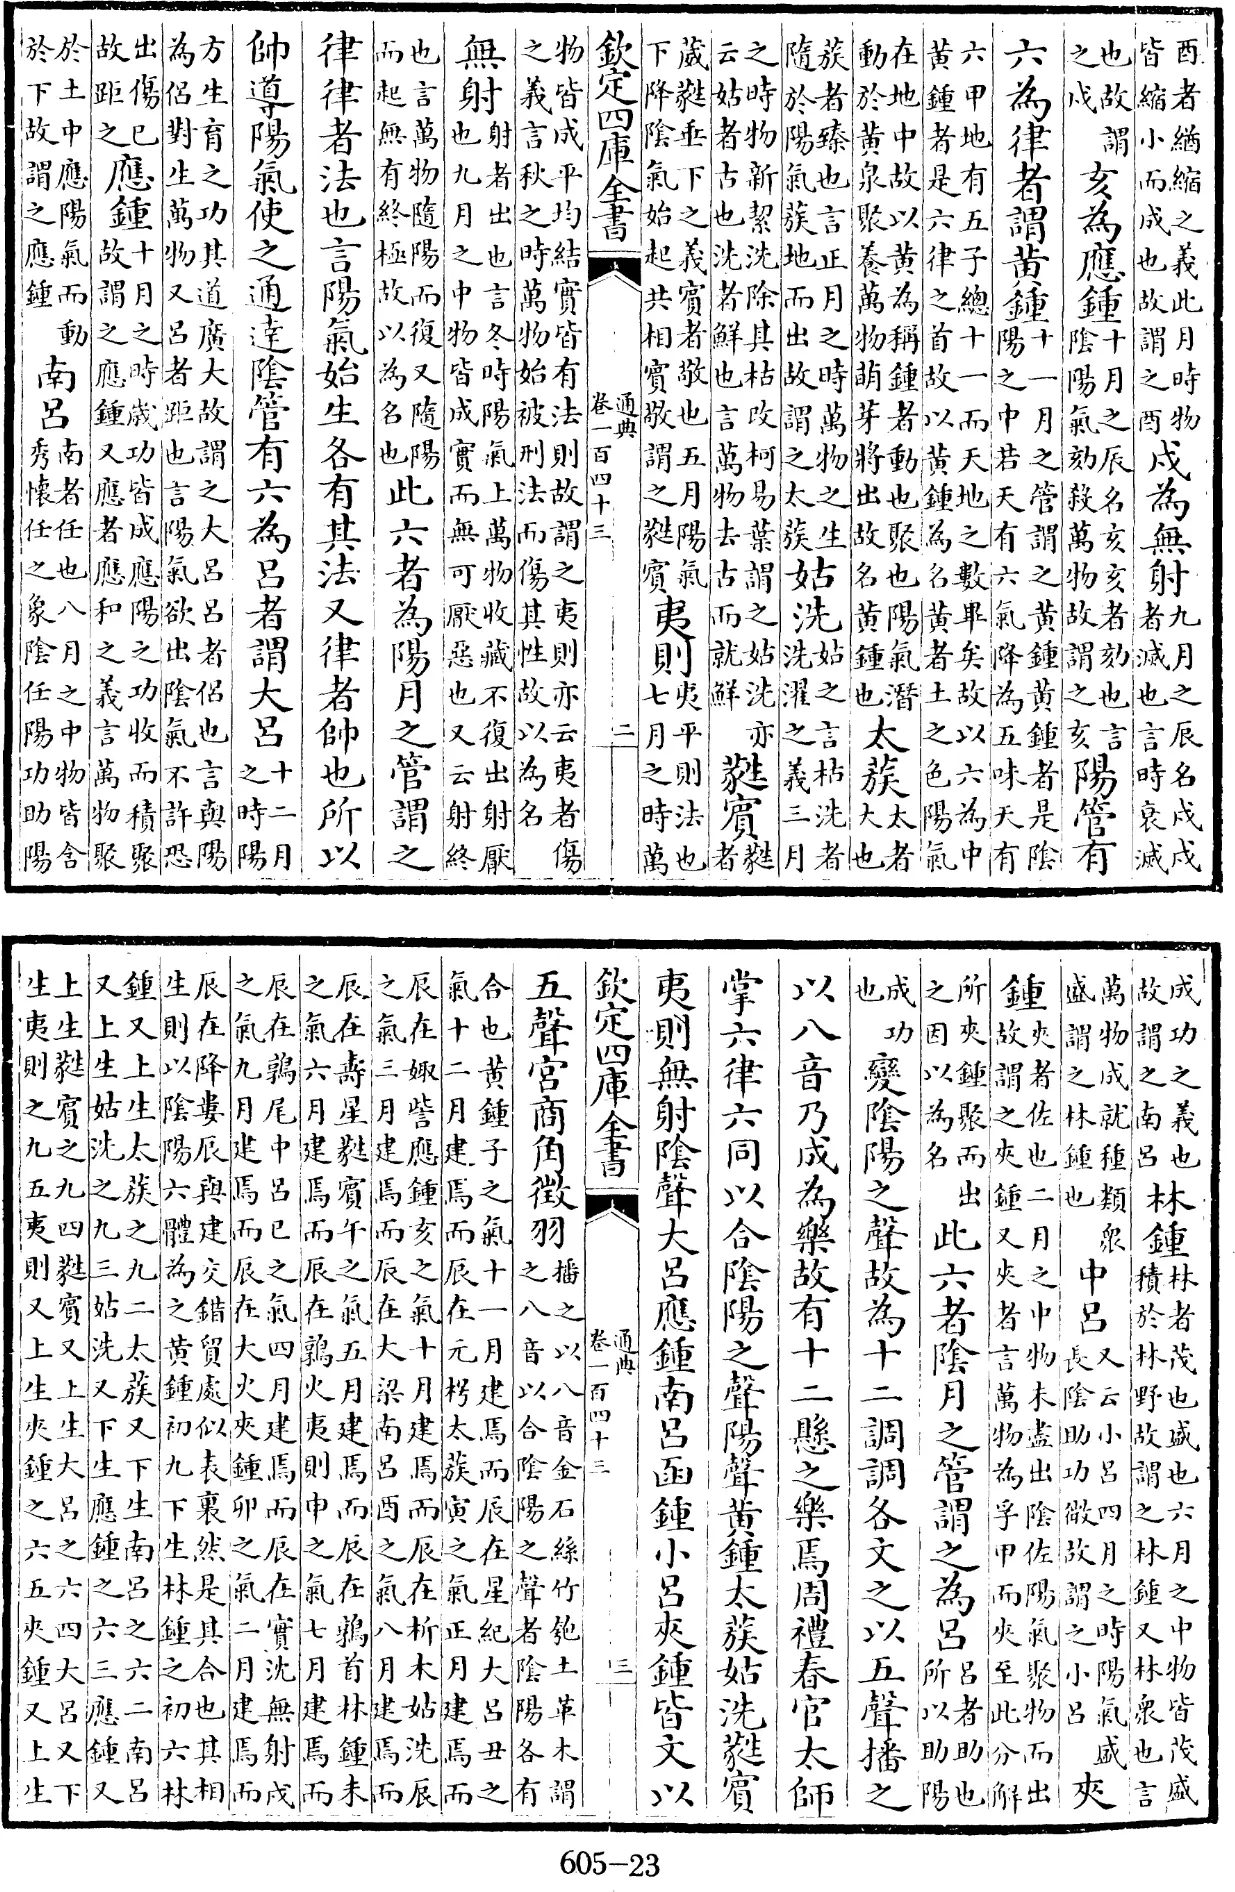 酉者緧縮之義此月時物皆縮小而成也故謂之酉戌為無射九月之辰名戌戌者滅也言時衰滅
也故謂之戌亥為應鍾十月之辰名亥亥者劾也言陰陽氣劾殺萬物故謂之亥陽管有
六為律者謂黄鍾十一月之管謂之黄鍾黄鍾者是陰陽之中若天有六氣降為五味天有
六甲地有五子總十一而天地之數畢矣故以六為中黄鍾者是六律之首故以黄鍾為名黄者土之色陽氣
在地中故以黄為稱鍾者動也聚也陽氣潛動於黄泉聚養萬物萌芽將出故名黄鍾也太蔟太者大也
蔟者臻也言正月之時萬物之生隨於陽氣蔟地而出故謂之太蔟姑洗姑之言枯洗者洗濯之義三月
之時物新絜洗除其枯改柯易葉謂之姑洗亦云姑者古也洗者鮮也言萬物去古而就鮮蕤賓蕤者
葳蕤垂下之義賓者敬也五月陽氣下降陰氣始起共相賓敬謂之蕤賓夷則夷平則法也七月之時萬
欽定四庫全書 通典 卷一百四十三 二
物皆成平均結實皆有法則故謂之夷則亦云夷者傷之義言秋之時萬物始被刑法而傷其性故以為名
無射射者出也言冬時陽氣上萬物收藏不復出射厭也九月之中物皆成實而無可厭惡也又云射終
也言萬物隨陽而復又隨陽而起無有終極故以為名也此六者為陽月之管謂之
律律者法也言陽氣始生各有其法又律者帥也所以
帥導陽氣使之通達陰管有六為吕者謂大吕十二月之時陽
方生育之功其道廣大故謂之大吕吕者侶也言與陽為侶對生萬物又吕者距也言陽氣欲出陰氣不許恐
出傷已故距之應鍾十月之時歲功皆成應陽之功收而積聚故謂之應鍾又應者應和之義言萬物聚
於土中應陽氣而動於下故謂之應鍾南吕南者任也八月之中物皆含秀懷任之象陰任陽功助陽
成功之義也故謂之南吕林鍾林者茂也盛也六月之中物皆茂盛積於林野故謂之林鍾又林衆也言
萬物成就種類衆盛謂之林鍾也中吕又云小吕四月之時陽氣盛長陰助功微故謂之小吕夾
鍾夾者佐也二月之中物未盡出陰佐陽氣聚物而出故謂之夾鍾又夾者言萬物為孚甲而夾至此分解
所夾鍾聚而出之因以為名此六者陰月之管謂之為吕吕者助也所以助陽
成功也變陰陽之聲故為十二調調各文之以五聲播之
以八音乃成為樂故有十二懸之樂焉周禮春官太師
掌六律六同以合陰陽之聲陽聲黄鍾太蔟姑洗蕤賓
夷則無射陰聲大吕應鍾南吕函鍾小吕夾鍾皆文以
欽定四庫全書 通典 卷一百四十三 三
五聲宫商角徵羽播之以八音金石絲竹匏土革木謂之八音以合陰陽之聲者陰陽各有
合也黄鍾子之氣十一月建焉而辰在星紀大吕丑之氣十二月建焉而辰在元枵太蔟寅之氣正月建焉而
辰在娵訾應鍾亥之氣十月建焉而辰在析木姑洗辰之氣三月建焉而辰在大梁南吕酉之氣八月建焉而
辰在壽星蕤賓午之氣五月建焉而辰在鶉首林鍾未之氣六月建焉而辰在鶉火夷則申之氣七月建焉而
辰在鶉尾中吕巳之氣四月建焉而辰在實沈無射戌之氣九月建焉而辰在大火夾鍾卯之氣二月建焉而
辰在降婁辰與建交錯貿處似表裏然是其合也其相生則以陰陽六體為之黄鍾初九下生林鍾之初六林
鍾又上生太蔟之九二太蔟又下生南吕之六二南吕又上生姑洗之九三姑洗又下生應鍾之六三應鍾又
上生蕤賓之九四蕤賓又上生大吕之六四大吕又下生夷則之九五夷則又上生夾鍾之六五夾鍾又上生
605-23